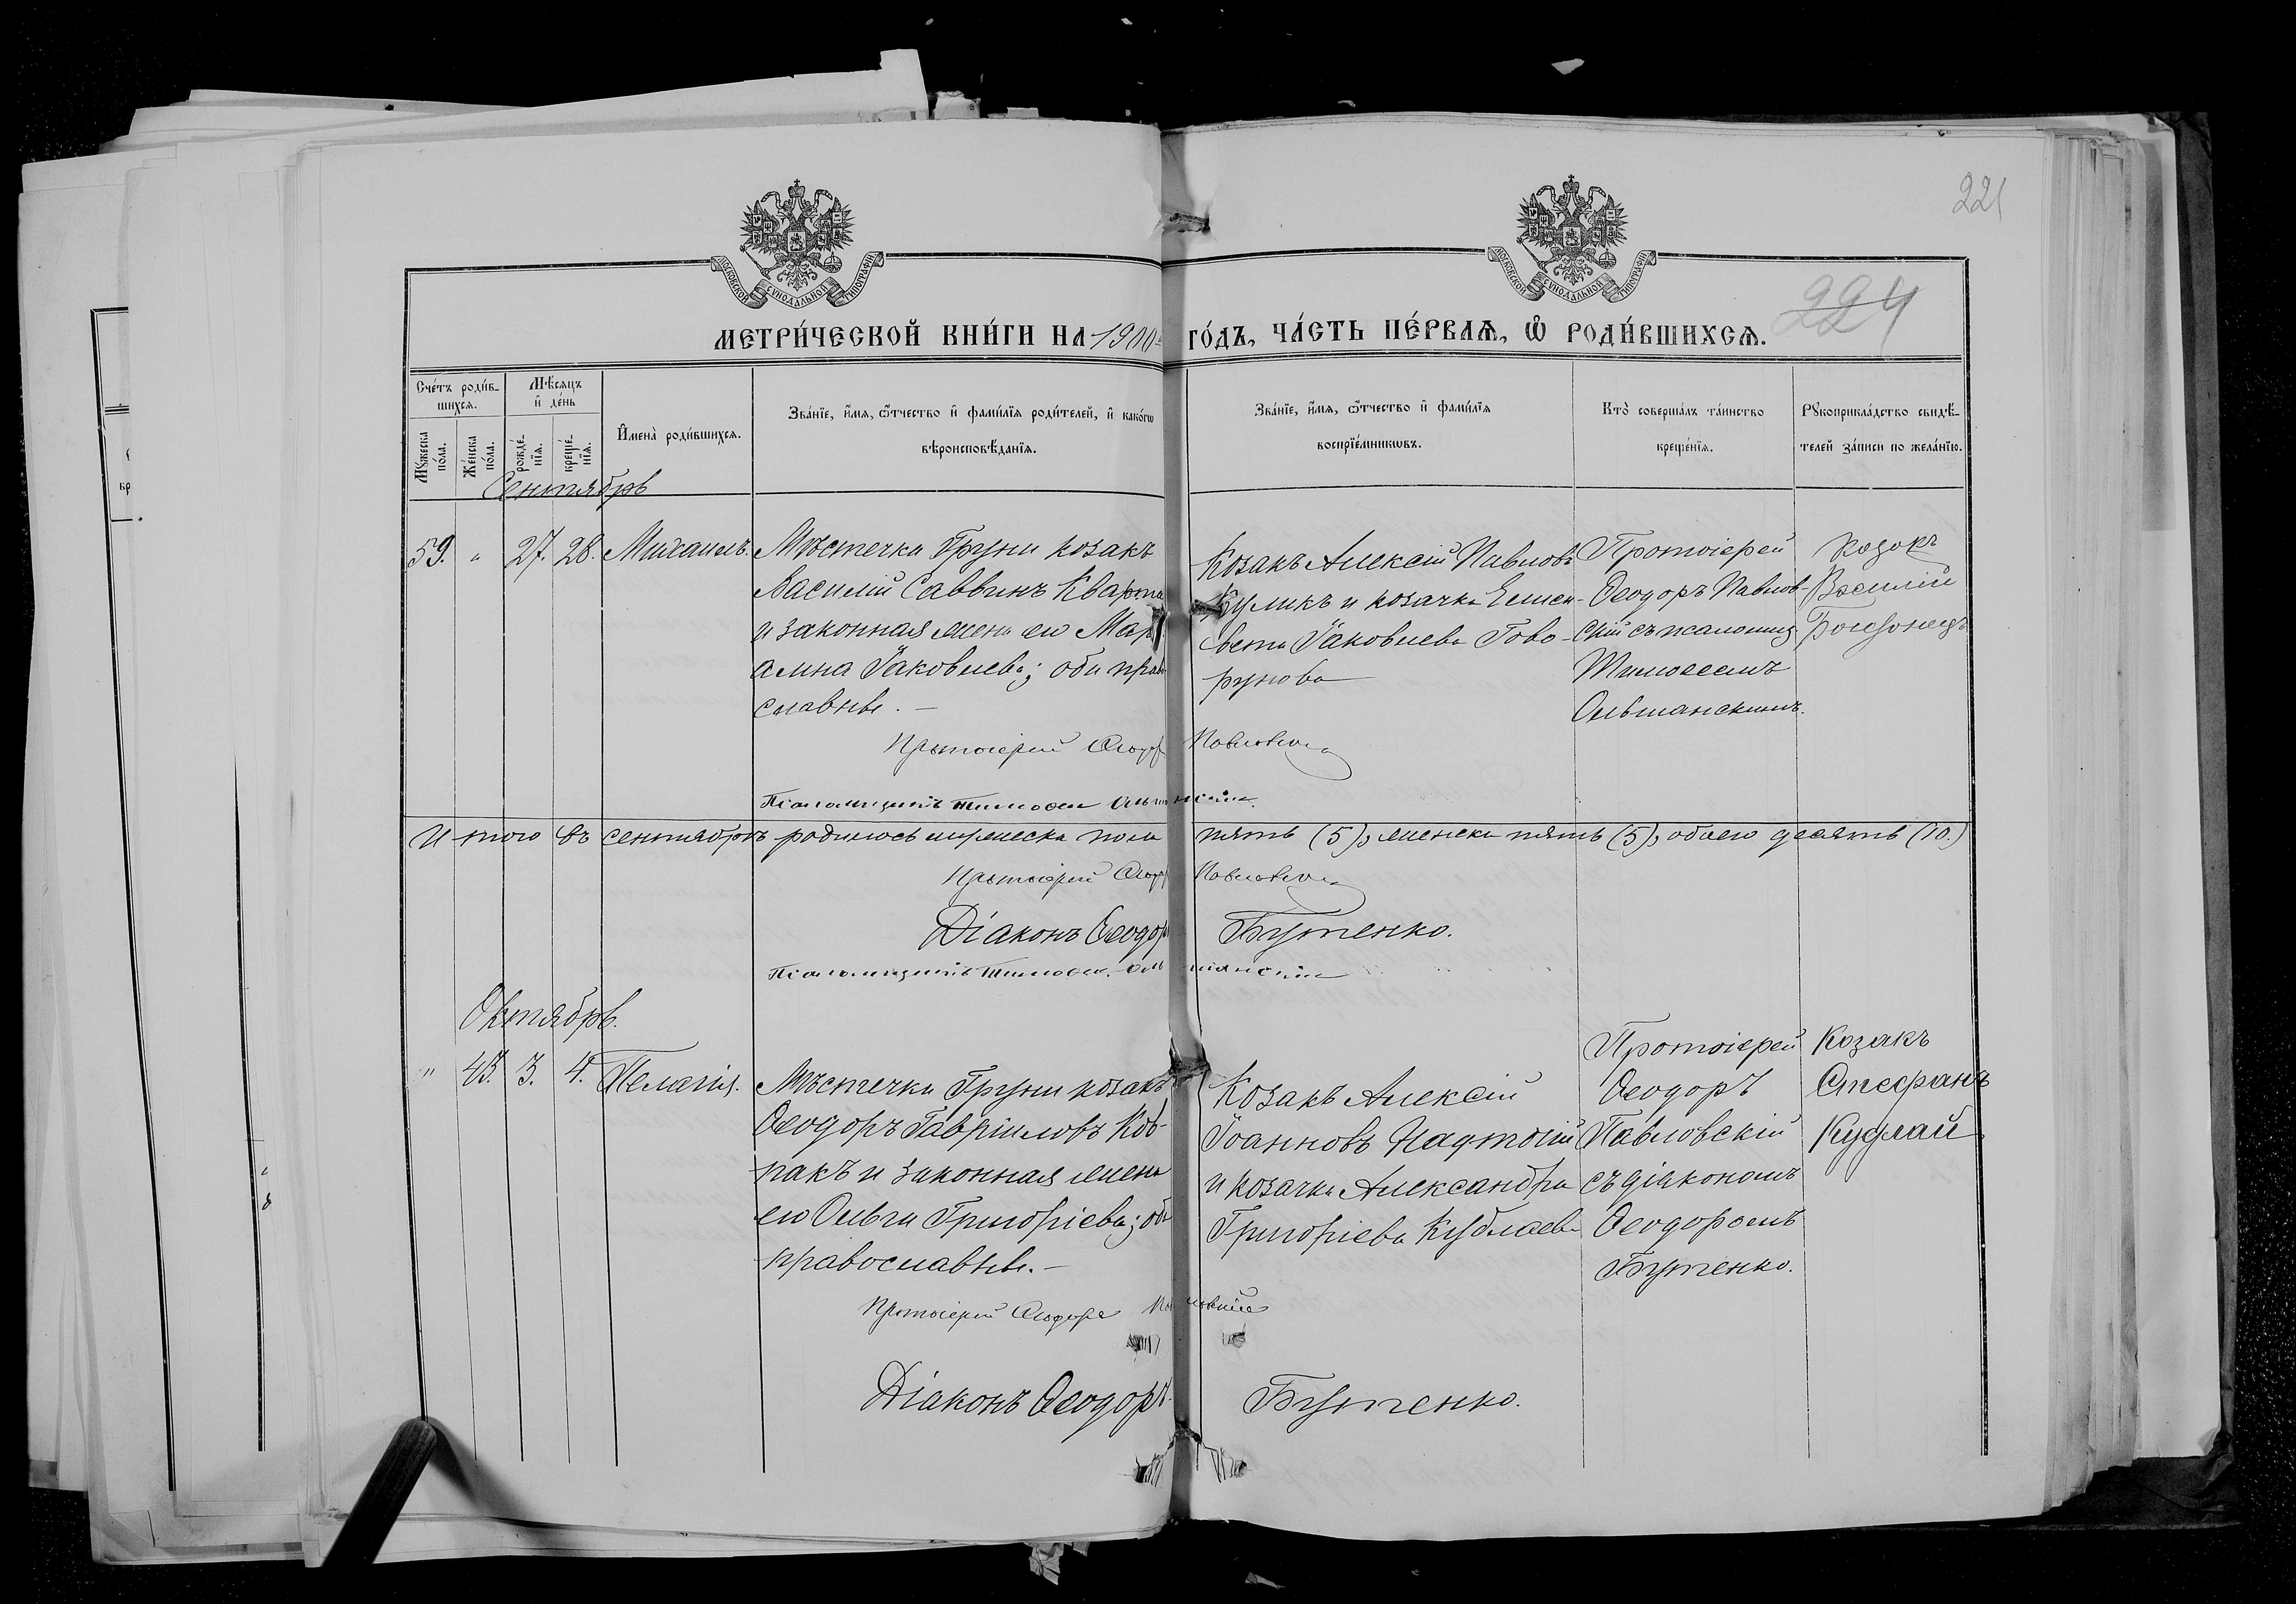 221
224
МОСКОВСКОЙ СУНОДАЛЬНОЙ ТИПОГРАФІИ
МОСКОВСКОЙ СУНОДАЛЬНОЙ ТИПОГРАФІИ
МЕТРИ́ЧЕСКОЙ КНИ́ГИ НА 1900 ГО́ДЪ, ЧА́СТЬ ПЕ́РВАѦ, Ѽ РОДИ́ВШИХСѦ.
Сче́тъ роди́в-
шихсѧ.
Мꙋжеска по́ла.
Же́нска по́ла.
Мѣ́сѧцъ
и҆ де́нь
рожде́-
нїѧ.
креще́-
нїѧ.
И҆мена̀ роди́вшихсѧ.
Зва́нїе, и҆́мѧ, ѻ҆́тчество и҆ фами́лїѧ роди́телей, и҆ како́гѡ
вѣроисповѣ́данїѧ.
Зва́нїе, и҆́мѧ, ѻ҆́тчество и҆ фами́лїѧ
воспрїе́мникѡвъ.
Кто̀ соверша́лъ та́инство
креще́нїѧ.
Рꙋкоприкла́дство свидѣ́-
телей за́писи по жела́нїю.
Сентябрь
59. " 27. 28. Михаилъ.
Мѣстечка Груни козакъ
Василій Саввинъ Кварта
и законная жена его Мар
Іаковлева; оба право
славные. —
Козакъ Алексій Павловъ
Куликъ и козачка Елиса-
вета Іаковлева Гово-
рунова
Протоіерей
Ѳеодоръ Павлов-
скій съ псаломщ.
Тимоѳеемъ
Ольшанскимъ.
Козакъ
Василій
Протоіерей Ѳеодоръ Павловскій
Псаломщикъ Тимоѳей Ольшанскій
Итого въ сентябрѣ родилось мужеска пола пять (5), женска пять (5), обоего десять (10.)
Протоіерей Ѳеодоръ Павловскій
Діаконъ Ѳеодоръ Бутенко.
Псаломщикъ Тимоѳей Ольшанскій
Октябрь.
" 43. 3. 4. Пелагія.
Мѣстечка Груни козакъ
Ѳеодоръ Гавріиловъ Ков-
пакъ и законная жена
его Ольга Григоріева; оба
православные. —
Козакъ Алексій
Іоанновъ Надточій
и козачка Александра
Григоріева Кудлаева
Протоіерей
Ѳеодоръ
Павловскій
съ діакономъ
Ѳеодоромъ
Бутенко.
Козакъ
Стефанъ
Кудлай
Протоіерей Ѳеодоръ Павловскій
Діаконъ Ѳеодоръ Бутенко.